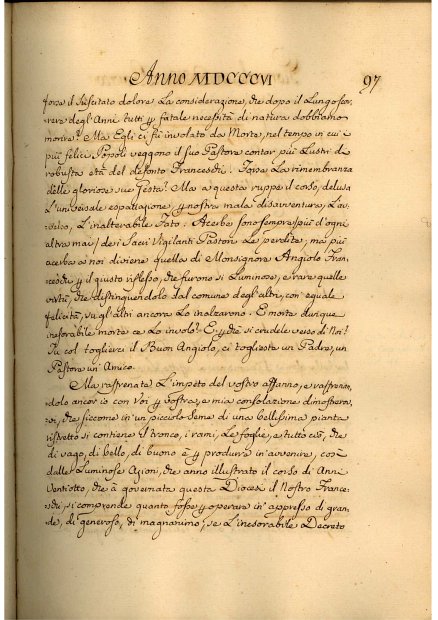 Anno MDCCCVI
97
forse il suscitato dolore La considerazione, che dopo il Lungo scor,
rere degl'Anni tutti per fatale necessità di natura dobbiamo
morire? Ma Egli ci fu involato da Morte, nel tempo in cui i
più felici Popoli veggono il suo Pastore contar più Lustri di
robusta età del defonto Franceschi! Forse La rimembranza
delle gloriose sue Gesta! Ma a questa ruppe il corso, delusa
L'universale espettazione, per nostra mala disavventura, L'av,
verso, L'inalterabile Fato. Acerba sono sempre più d'ogni
altra mai dei Sacri Vigilanti Pastori Le perdite, ma più
acerba a noi diviene quella di Monsignore Angiolo Fran,
ceschi per il giusto riflesso, che furono sì Luminose, e rare quelle
virtù, che distinguendolo dal comune degli altri, con eguale
felicità, su gl'altri ancora Lo inalzarono. E morte dunque
inesorabile morte ce Lo involò? E perchè sì crudele verso di Noi!
Tu col toglierci il Buon Angiolo, ci togliesti un Padre, un
Pastore un Amico.
Ma raffrenate L'impeto del vostro affanno, e raffrenan,
dolo ancor io con Voi per vostra, e mia consolazione dimostrero,
vvi, che siccome in un picciolo seme di una bellissima pianta
ristretto si contiene il tronco, i rami, Le foglie, e tutto ciò, che
di vago, di bello, di buono è per produrre in avvenire, così
dalle Luminose Azioni, che anno illustrato il corso di Anni
Ventiotto, che à governata questa Diocesi il Nostro France,
schi, si comprende quanto fosse per operare in appresso di gran,
de, di generoso, di magnanimo, se L'inesorabile Decreto